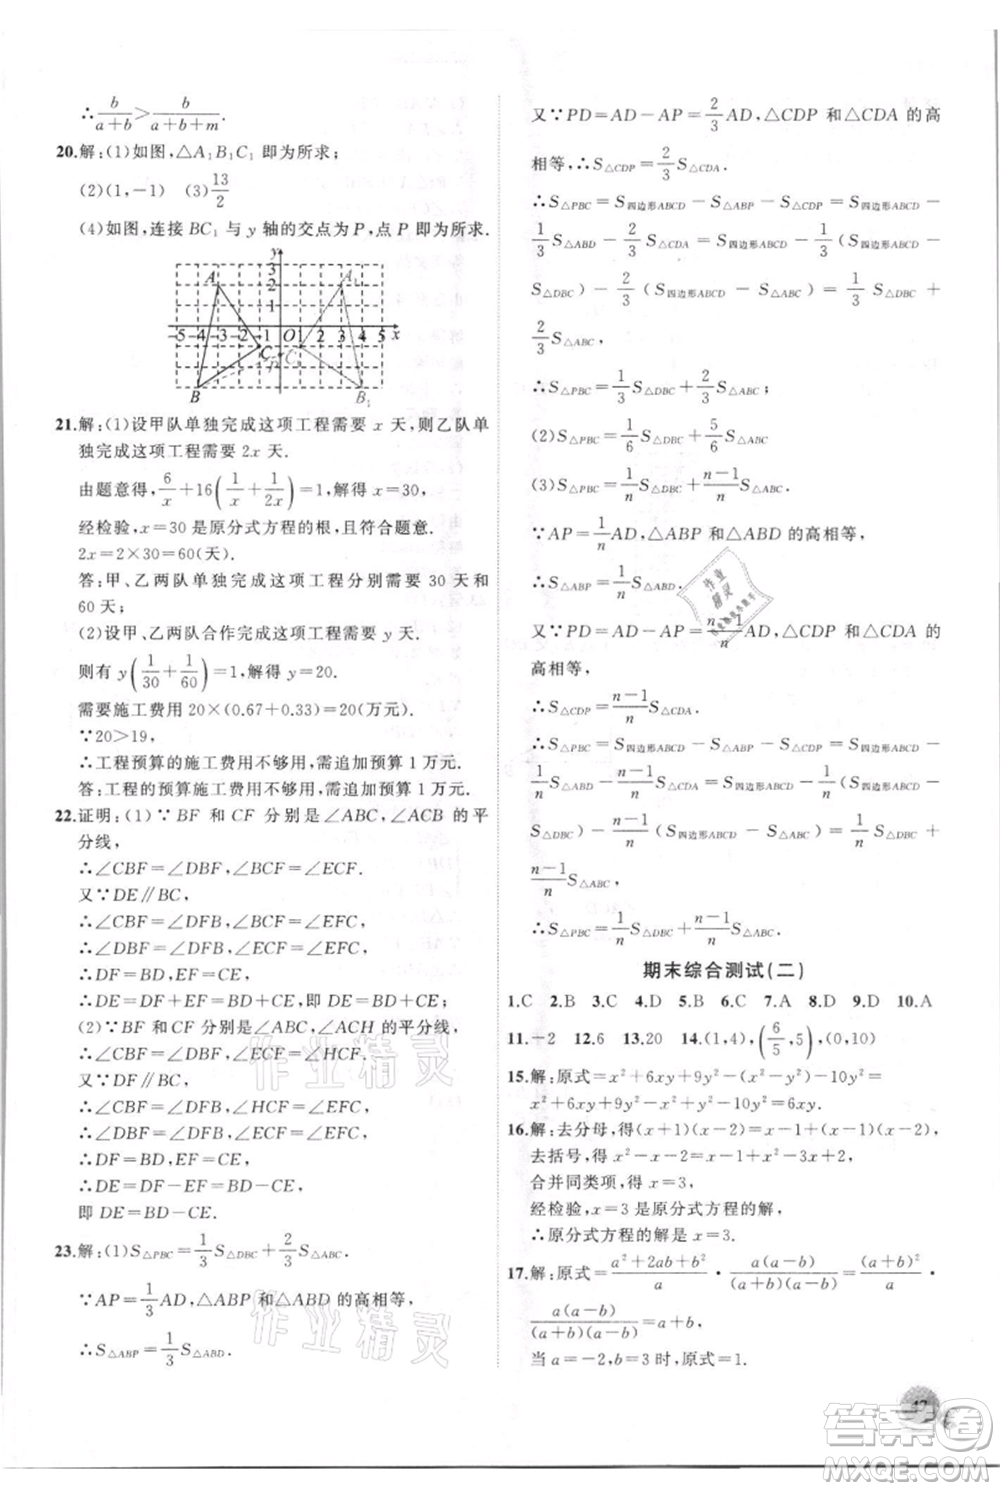 ∴b/(a+b)>b/(a+b+m).
20.解:(1)如图,△A₁B₁C₁即为所求;
(2)(1,-1) (3)13/2
(4)如图,连接BC₁与y轴的交点为P,点P即为所求.
y
3
A 2 A₁
1
-5 -4 -3 -2 -1 O 1 2 3 4 5 x
C C₁
P
B B₁
21.解:(1)设甲队单独完成这项工程需要x天,则乙队单
独完成这项工程需要2x天.
由题意得,6/x+16(1/x+1/2x)=1,解得x=30,
经检验,x=30是原分式方程的根,且符合题意.
2x=2×30=60(天).
答:甲、乙两队单独完成这项工程分别需要30天和
60天;
(2)设甲、乙两队合作完成这项工程需要y天.
则有y(1/30+1/60)=1,解得y=20.
需要施工费用20×(0.67+0.33)=20(万元).
∵20>19,
∴工程预算的施工费用不够用,需追加预算1万元.
答:工程的预算施工费用不够用,需追加预算1万元.
22.证明:(1)∵BF和CF分别是∠ABC,∠ACB的平
分线,
∴∠CBF=∠DBF,∠BCF=∠ECF.
又∵DE∥BC,
∴∠CBF=∠DFB,∠BCF=∠EFC,
∴∠DBF=∠DFB,∠ECF=∠EFC,
∴DF=BD,EF=CE,
∴DE=DF+EF=BD+CE,即DE=BD+CE.
(2)∵BF和CF分别是∠ABC,∠ACH的平分线,
∴∠CBF=∠DBF,∠HCF=∠ECF.
又∵DE∥BC,
∴∠CBF=∠DFB,∠HCF=∠EFC,
∴∠DBF=∠DFB,∠ECF=∠EFC,
∴DF=BD,EF=CE,
∴DE=DF-EF=BD-CE,
即DE=BD-CE.
23.解:(1)S△PBC=1/3S△DBC+2/3S△ABC.
∵AP=1/3AD,△ABP和△ABD的高相等,
∴S△ABP=1/3S△ABD.
又∵PD=AD-AP=2/3AD,△CDP和△CDA的高
相等,∴S△CDP=2/3S△CDA.
∴S△PBC=S四边形ABCD-S△ABP-S△CDP=S四边形ABCD-
1/3S△ABD-2/3S△CDA=S四边形ABCD-1/3(S四边形ABCD-
S△DBC)-2/3(S四边形ABCD-S△ABC)=1/3S△DBC+
2/3S△ABC.
∴S△PBC=1/3S△DBC+2/3S△ABC;
(2)S△PBC=1/6S△DBC+5/6S△ABC;
(3)S△PBC=1/nS△DBC+(n-1)/nS△ABC;
∵AP=1/nAD,△ABP和△ABD的高相等,
∴S△ABP=1/nS△ABD.
又∵PD=AD-AP=(n-1)/nAD,△CDP和△CDA的
高相等,
∴S△CDP=(n-1)/nS△CDA.
∴S△PBC=S四边形ABCD-S△ABP-S△CDP=S四边形ABCD-
1/nS△ABD-(n-1)/nS△CDA=S四边形ABCD-1/n(S四边形ABCD-
S△DBC)-(n-1)/n(S四边形ABCD-S△ABC)=1/nS△DBC+
(n-1)/nS△ABC,
∴S△PBC=1/nS△DBC+(n-1)/nS△ABC.
期末综合测试(二)
1.C 2.B 3.C 4.D 5.B 6.C 7.A 8.D 9.D 10.A
11.-2 12.6 13.20 14.(1,4),(6/5,5),(0,10)
15.解:原式=x²+6xy+9y²-(x²-y²)-10y²=
x²+6xy+9y²-x²+y²-10y²=6xy.
16.解:去分母,得(x+1)(x-2)=x(x-1)-(x-2),
去括号,得x²-x-2=x²-x-x+2,
合并同类项,得x-3+x=3,
经检验,x=3是原分式方程的解,
∴原分式方程的解是x=3.
17.解:原式=(a²+2ab+b²)/a·a(a-b)/((a+b)(a-b))=(a+b)²/a·
a(a-b)/((a+b)(a-b))=a+b,
当a=-2,b=3时,原式=1.
作业精灵
作业精灵
作业精灵
47
答案圈
MXQE.COM